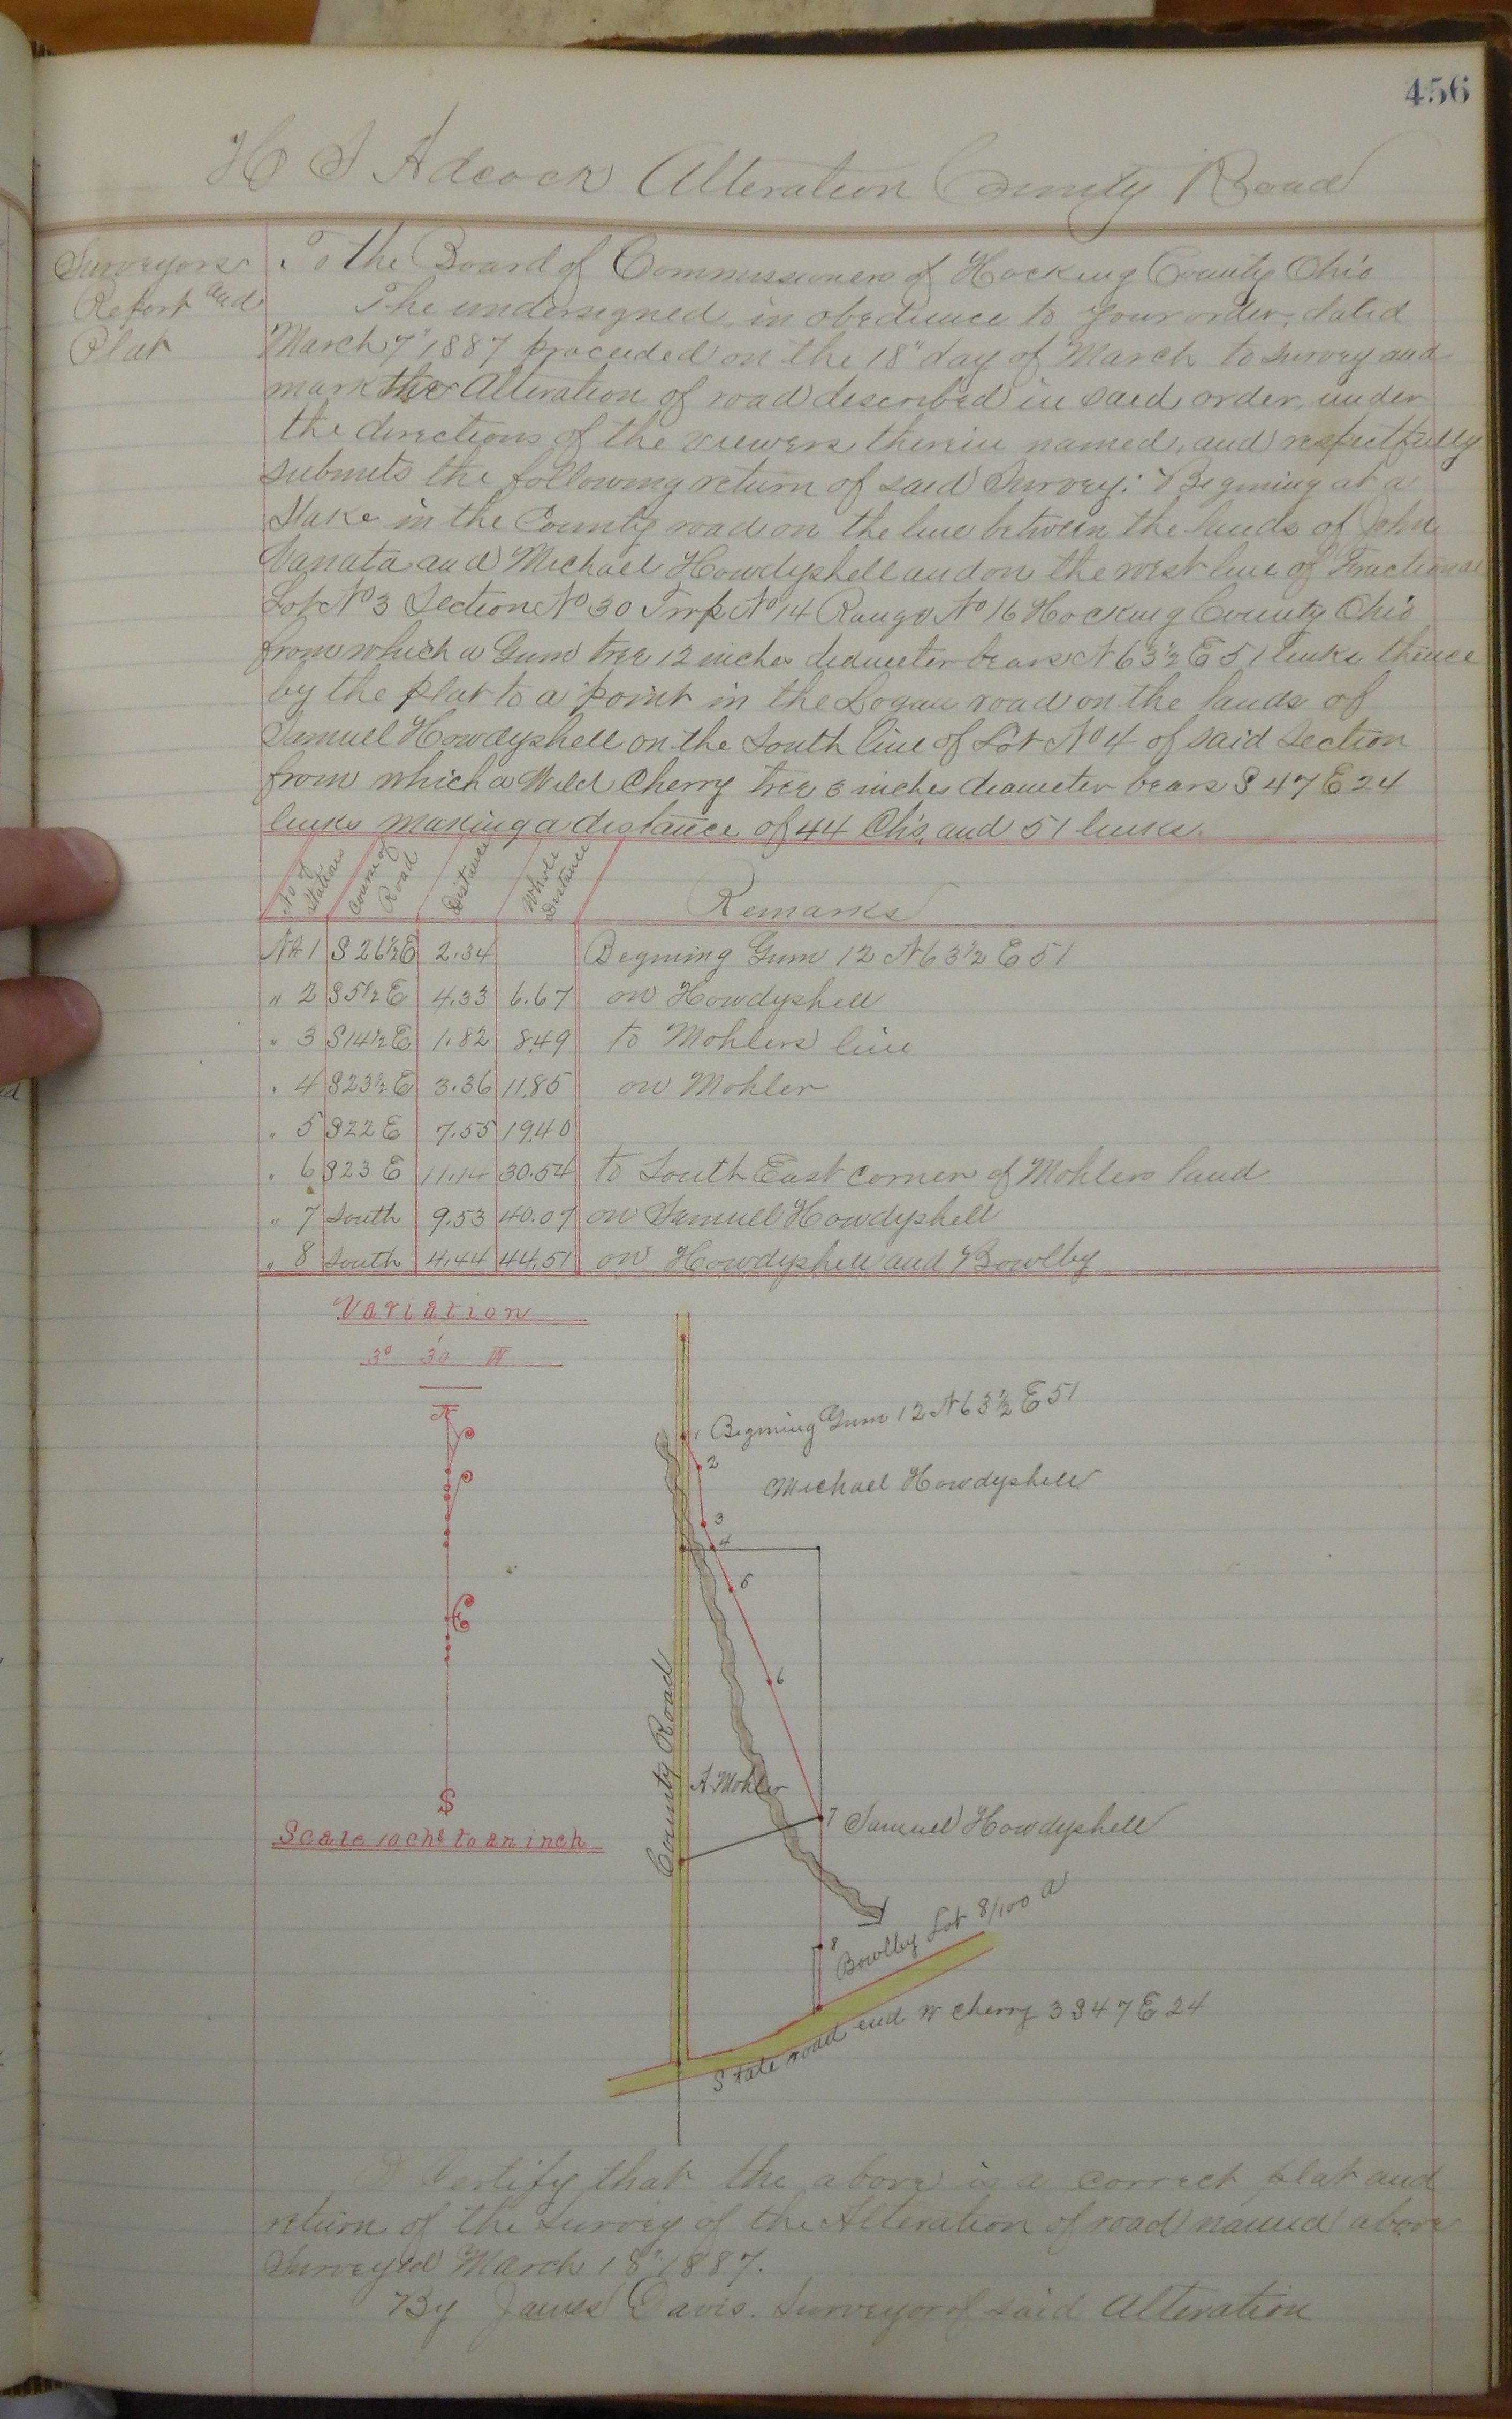 456
H S Adcock Alteration County Road
Surveyors
Report and
Plat
To the Board of Commissioners of Hocking County Ohio
The undersigned, in obedience to your order, dated
March 7" 1887 proceeded on the 18" day of March to survey and
mark the Alteration of road described in said order, under
the directions of the viewers therein named, and respectfully
submits the following return of said Survey: Begining at a
Stake in the County road on the line between the lands of John
Vanata and Michael Howdyshell and on the west line of Fractional
Lot No 3 Section No 30 Twp No 14 Range No 16 Hocking County Ohio
from which a Gum tree 12 inches diameter bears N 63½ E 51 links thence
by the plat to a point in the Logan road on the lands of
Samuel Howdyshell on the South line of Lot No 4 of said Section
from which a Wild Cherry tree 3 inches diameter bears S 47 E 24
links making a distance of 44 Chs. and 51 links.
No of Stations Course of Road Distance Whole Distance Remarks
No 1 S 26½ E 2.34 Begining Gum 12 N 63½ E 51
" 2 S 5½ E 4.33 6.67 on Howdyshell
" 3 S 14½ E 1.82 8.49 to Mohlers line
" 4 S 23½ E 3.36 11.85 on Mohler
" 5 S 22 E 7.55 19.40
" 6 S 23 E 11.14 30.54 to South East corner of Mohlers land
" 7 South 9.53 40.07 on Samuel Howdyshell
" 8 South 4.44 44.51 on Howdyshell and Bowlby
Variation
3° 30' W
N
S
Scale 10 chs to an inch
1 Begining Gum 12 N 63½ E 51
2
Michael Howdyshell
3
4
5
6
County Road
A Mohler
7 Samuel Howdyshell
8
Bowlby Lot 8/100 a
State road end W Cherry 3 S 47 E 24
I Certify that the above is a correct plat and
return of the Survey of the Alteration of road named above
Surveyed March 18" 1887.
By James Davis. Surveyor of said Alteration